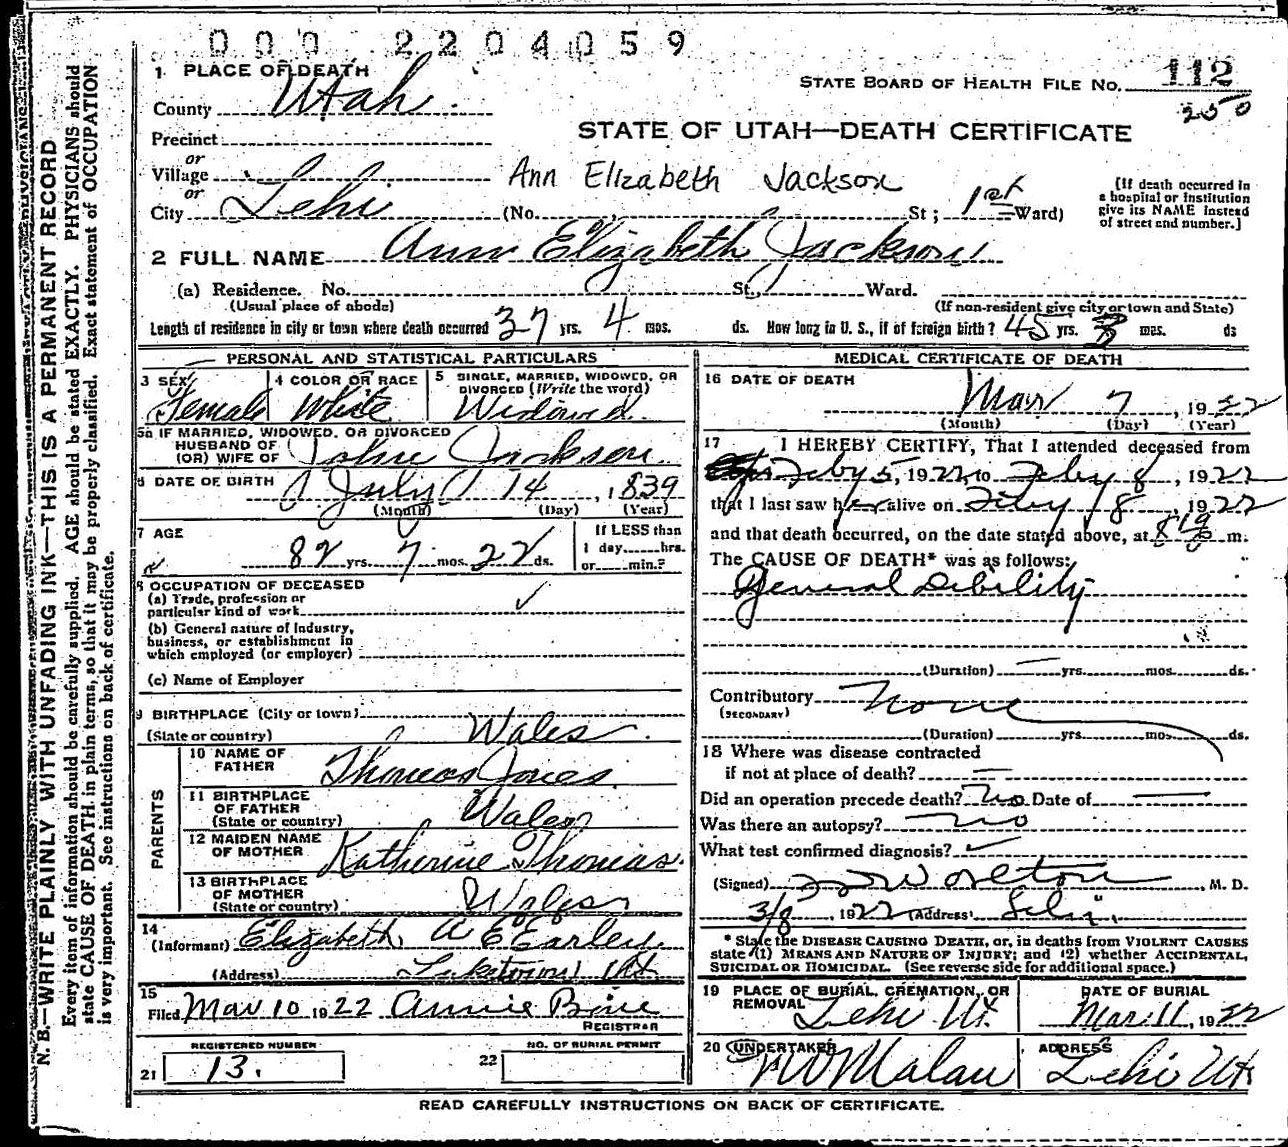 000 2204059
1 PLACE OF DEATH
STATE BOARD OF HEALTH FILE NO. 112
250
County Utah
STATE OF UTAH—DEATH CERTIFICATE
Precinct
or
Village
Ann Elizabeth Jackson
or
City Lehi (No. St; 1st Ward)
[If death occurred in
a hospital or institution
give its NAME instead
of street and number.]
2 FULL NAME Ann Elizabeth Jackson
(a) Residence. No. St., Ward.
(Usual place of abode) (If non-resident give city or town and State)
Length of residence in city or town where death occurred 37 yrs. 4 mos. ds. How long in U. S., if of foreign birth? 45 yrs. mos. ds
PERSONAL AND STATISTICAL PARTICULARS
3 SEX Female
4 COLOR OR RACE White
5 SINGLE, MARRIED, WIDOWED, OR
DIVORCED (Write the word)
Widowed
5a IF MARRIED, WIDOWED, OR DIVORCED
HUSBAND OF
(OR) WIFE OF John Jackson
6 DATE OF BIRTH July 14, 1839
(Month) (Day) (Year)
7 AGE
82 yrs. 7 mos. 22 ds.
If LESS than
1 day......hrs.
or......min.?
8 OCCUPATION OF DECEASED
(a) Trade, profession or
particular kind of work
(b) General nature of industry,
business, or establishment in
which employed (or employer)
(c) Name of Employer
9 BIRTHPLACE (City or town)
(State or country) Wales
PARENTS
10 NAME OF
FATHER Thomas Jones
11 BIRTHPLACE
OF FATHER
(State or country) Wales
12 MAIDEN NAME
OF MOTHER Katherine Thomas
13 BIRTHPLACE
OF MOTHER
(State or country) Wales
14
(Informant) Elizabeth A E Earley
(Address) Ut
15
Filed Mar 10 1922 Annie
REGISTRAR
REGISTERED NUMBER
21 13.
NO. OF BURIAL PERMIT
22
MEDICAL CERTIFICATE OF DEATH
16 DATE OF DEATH
Mar 7, 1922
(Month) (Day) (Year)
17 I HEREBY CERTIFY, That I attended deceased from
Feby 5, 1922, to Feby 8, 1922
that I last saw her alive on Feby 8, 1922
and that death occurred, on the date stated above, at m.
The CAUSE OF DEATH* was as follows:
General Debility
(Duration) yrs. mos. ds.
Contributory None
(SECONDARY)
(Duration) yrs. mos. ds.
18 Where was disease contracted
if not at place of death?
Did an operation precede death? No Date of
Was there an autopsy? no
What test confirmed diagnosis?
(Signed) Worlton, M. D.
3/8, 1922 (Address) Lehi.
* State the DISEASE CAUSING DEATH, or, in deaths from VIOLENT CAUSES
state (1) MEANS AND NATURE OF INJURY; and (2) whether ACCIDENTAL,
SUICIDAL OR HOMICIDAL. (See reverse side for additional space.)
19 PLACE OF BURIAL, CREMATION, OR
REMOVAL Lehi Ut.
DATE OF BURIAL
Mar 11, 1922
20 UNDERTAKER
Malan
ADDRESS
Lehi Ut
READ CAREFULLY INSTRUCTIONS ON BACK OF CERTIFICATE.
N. B.—WRITE PLAINLY WITH UNFADING INK—THIS IS A PERMANENT RECORD
Every item of information should be carefully supplied. AGE should be stated EXACTLY. PHYSICIANS should
state CAUSE OF DEATH in plain terms, so that it may be properly classified. Exact statement of OCCUPATION
is very important. See instructions on back of certificate.